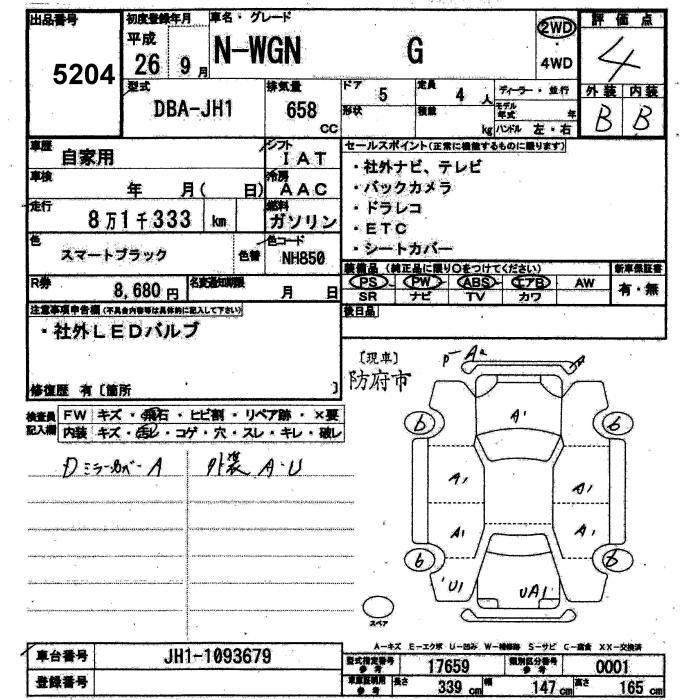 出品番号
5204
初度登録年月
平成
26 9月
車名・グレード
N-WGN G
2WD
・
4WD
評価点
4
外装 内装
B B
型式
DBA-JH1
排気量
658
CC
ドア
5
定員
4人
形状
積載
kg
ディーラー・並行
モデル
年式 年
ハンドル 左・右
車歴
自家用
シフト
IAT
車検
年 月( 日)
冷房
AAC
走行
8万1千333 km
燃料
ガソリン
色
スマートブラック
色替
色コード
NH850
R券
8,680円
名変通知期限
月 日
セールスポイント(正常に機能するものに限ります)
・社外ナビ、テレビ
・バックカメラ
・ドラレコ
・ETC
・シートカバー
装備品(純正品に限り○をつけてください)
PS PW ABS エアB AW
SR ナビ TV カワ
新車保証書
有・無
後日品
注意事項申告欄(不具合内容等は具体的に記入して下さい)
・社外LEDバルブ
修復歴 有〔箇所 〕
検査員
記入欄
FW キズ・飛石・ヒビ割・リペア跡・×要
内装 キズ・汚レ・コゲ・穴・スレ・キレ・破レ
Dミラーカバー A
外装 A・U
〔現車〕
防府市
A
A1
b
b
A1
A1
A1
A1
b
b
U1
UA1
スペア
A-キズ E-エクボ U-凹み W-補修跡 S-サビ C-腐食 XX-交換済
車台番号
JH1-1093679
登録番号
型式指定番号
参考
17659
類別区分番号
参考
0001
車庫証明用
参考
長さ
339 cm
幅
147 cm
高さ
165 cm